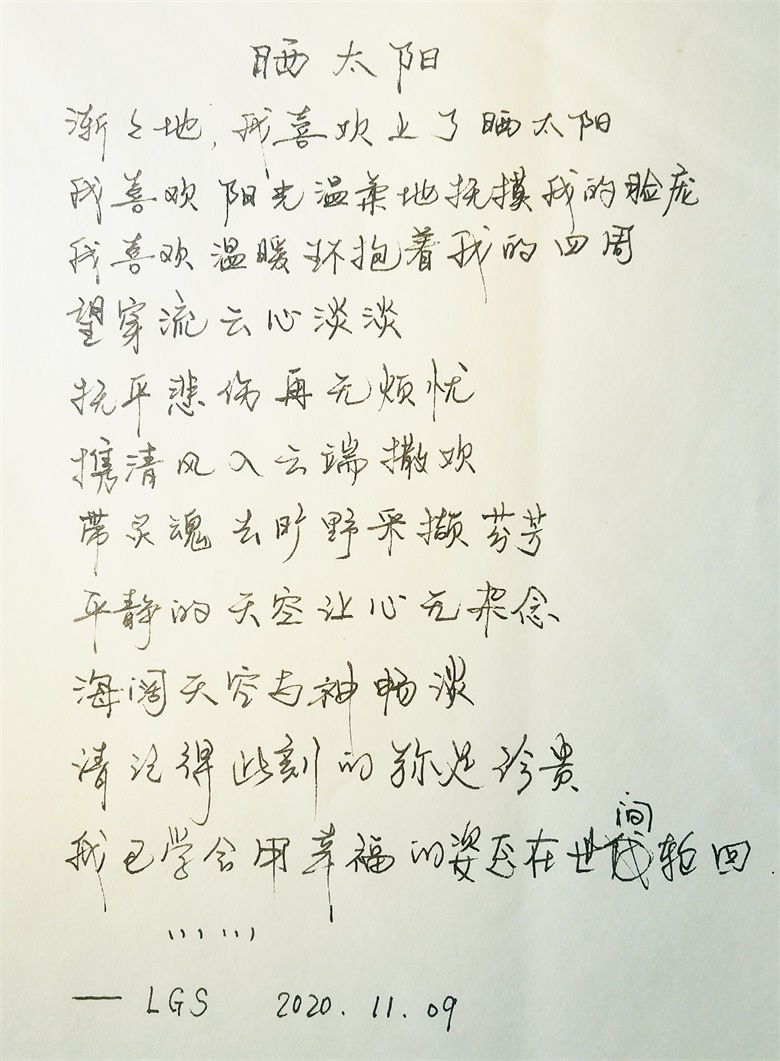 晒太阳
渐々地,我喜欢上了晒太阳
我喜欢阳光温柔地抚摸我的脸庞
我喜欢温暖环抱着我的四周
望穿流云心淡淡
抚平悲伤再无烦忧
携清风入云端撒欢
带灵魂去旷野采撷芬芳
平静的天空让心无杂念
海阔天空与神畅淡
请记得此刻的弥足珍贵
我已学会用幸福的姿态在世间轮回
……
— LGS 2020.11.09